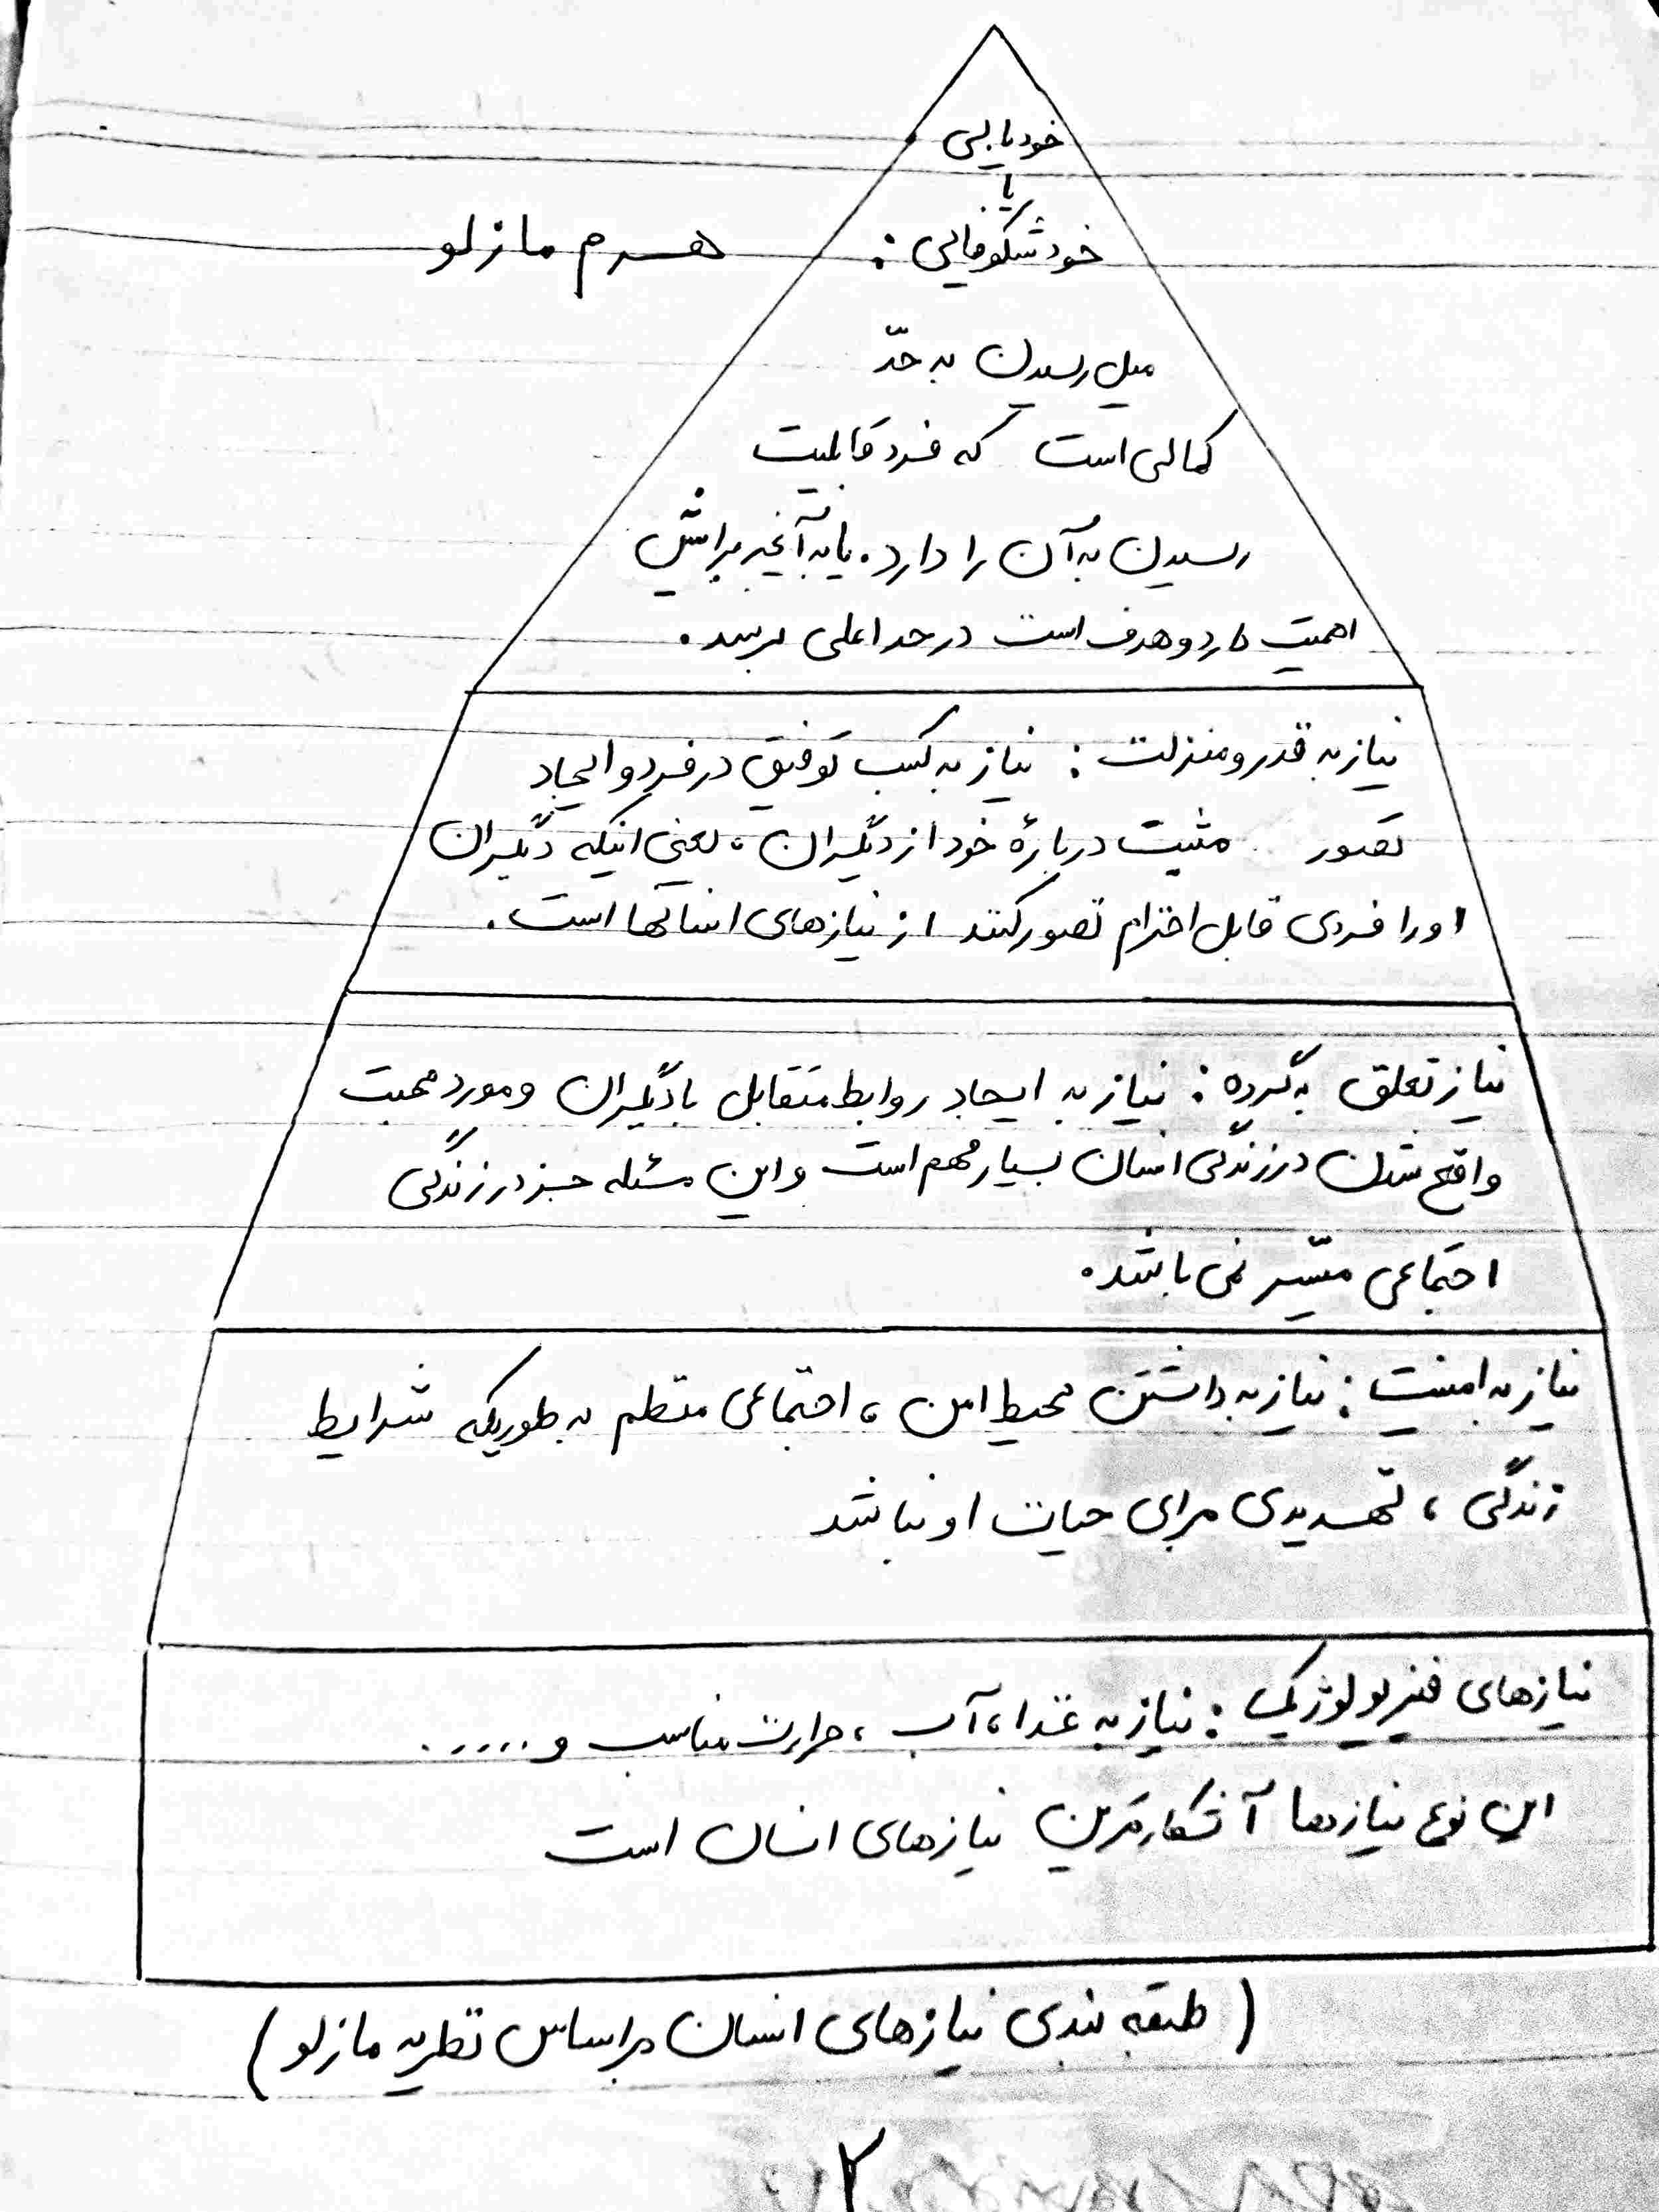 خودیابی
یا
خودشکوفایی :
هرم مازلو
میل رسیدن به حدّ
کمالی است که فرد قابلیت
رسیدن به آن را دارد. یا به آنچه برایش
اهمیت دارد و هدف است در حد اعلی برسد.
نیاز به قدر و منزلت : نیاز به کسب توفیق در فرد و ایجاد
تصور مثبت دربارهٔ خود از دیگران ، یعنی اینکه دیگران
او را فردی قابل احترام تصور کنند از نیازهای انسانها است.
نیاز تعلق به گروه : نیاز به ایجاد روابط متقابل با دیگران و مورد محبت
واقع شدن در زندگی انسان بسیار مهم است و این مسئله جز در زندگی
اجتماعی میسّر نمی باشد.
نیاز به امنیت : نیاز به داشتن محیط امن ، اجتماعی منظم به طوریکه شرایط
زندگی ، تهدیدی برای حیات او نباشد
نیازهای فیزیولوژیک : نیاز به غذا ، آب ، حرارت مناسب و .....
این نوع نیازها آشکارترین نیازهای انسان است
( طبقه بندی نیازهای انسان براساس نظریه مازلو )
۲